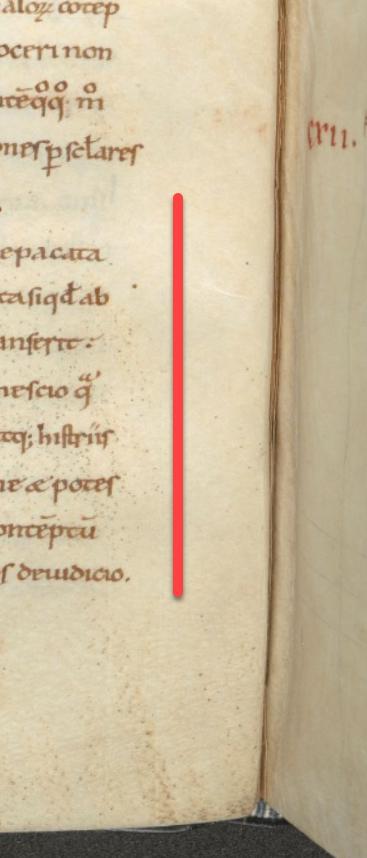 aloꝝ cōtēp
oceri non
tēqͦqͦ; m̊
nes ꝑ sc̄lares
e pacata
ta siqđ ab
anserit:
nescio qͣ
tq; histriis
ne æ potes
ontēptū
s deiudicio.
cxii.